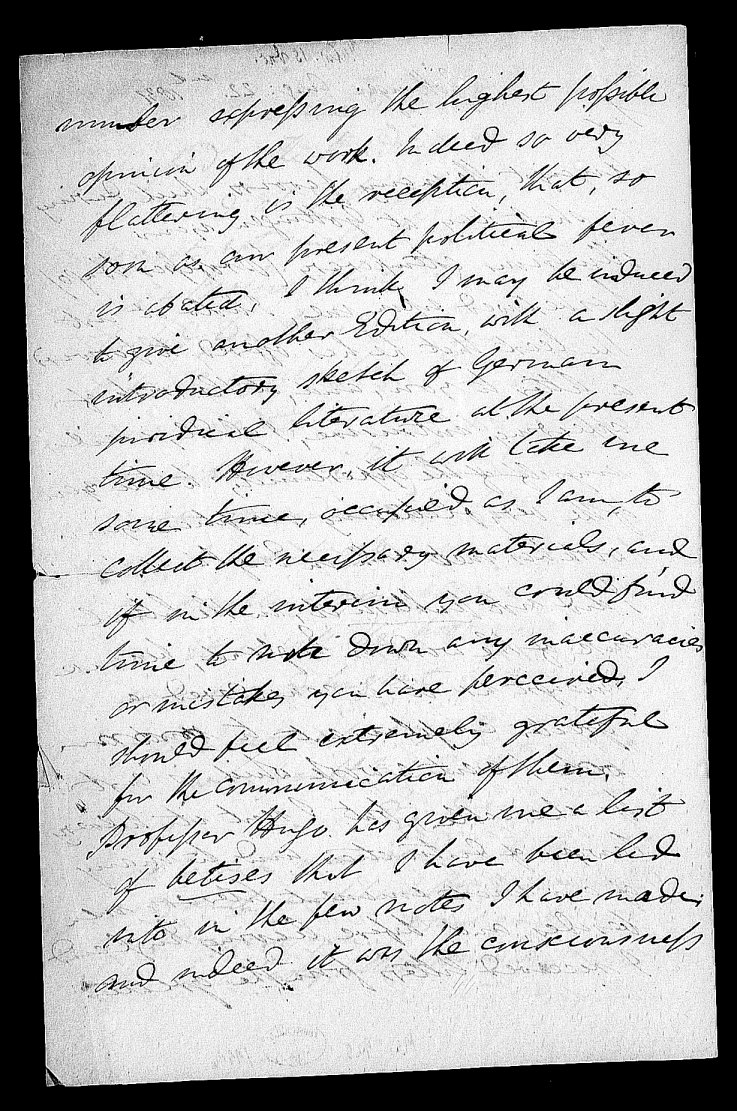 number expressing the highest possible
opinion of the work. Indeed so very
flattering is the reception, that, so
soon as our present political fever
is abated, I think, I may be induced
to give another Edition, with a slight
introductory sketch of German
juridical literature at the present
time. However it will take me
some time, occupied as I am, to
collect the necessary materials, and
if in the interim you could find
time to note down any inaccuracies
or mistakes you have perceived, I
should feel extremely grateful
for the communication of them.
Professor Hugo has given me a list
of betises that I have been led
into in the few notes I have made;
and indeed it was the consciousness